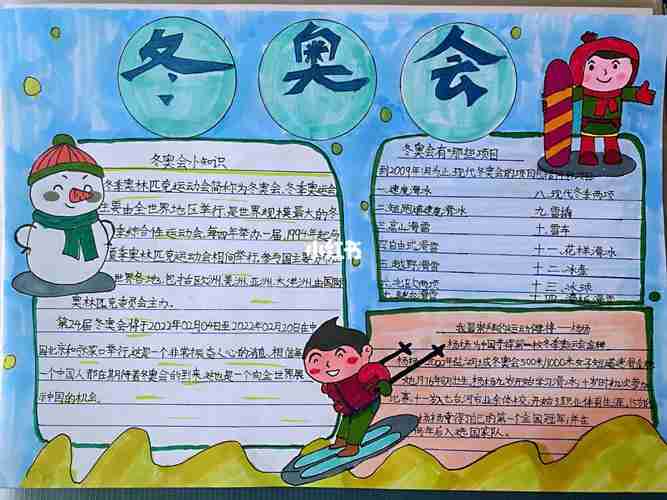 冬奥会
冬奥会小知识
冬季奥林匹克运动会简称为冬奥会,冬季奥运会
主要由全世界地区举行,是世界规模最大的冬
季综合性运动会,每四年举办一届,1994年起与
夏季奥林匹克运动会相间举行,参与国主要
世界各地,包括欧洲,美洲,亚洲,大洋洲,由国际
奥林匹克委员会主办。
第24届冬奥会将于2022年02月04日至2022年02月20日在中
国北京和张家口举行,这是一个非常振奋人心的消息,相信每
一个中国人都在期待着冬奥会的到来,这也是一个向全世界展
示中国的机会。
小红书
冬奥会有哪些项目
到2009年1月为止,现代冬奥会的项目
一.速度滑冰
八.现代冬季两项
二.短跑道速度滑冰
九.雪橇
三.高山滑雪
十.雪车
四.自由式滑雪
十一.花样滑冰
五.越野滑雪
十二.冰壶
六.北欧两项
十三.冰球
七.跳台滑雪
十四.
我最崇拜的运动健将——杨扬
杨扬,为中国夺得第一枚冬奥运会金牌
杨扬,
冬奥会500米/1000米女子短道速滑
北京,十一岁,七台河市业余体校,开始
杨扬赢得自己的第一个全国冠军,并在
同年后入选国家队。